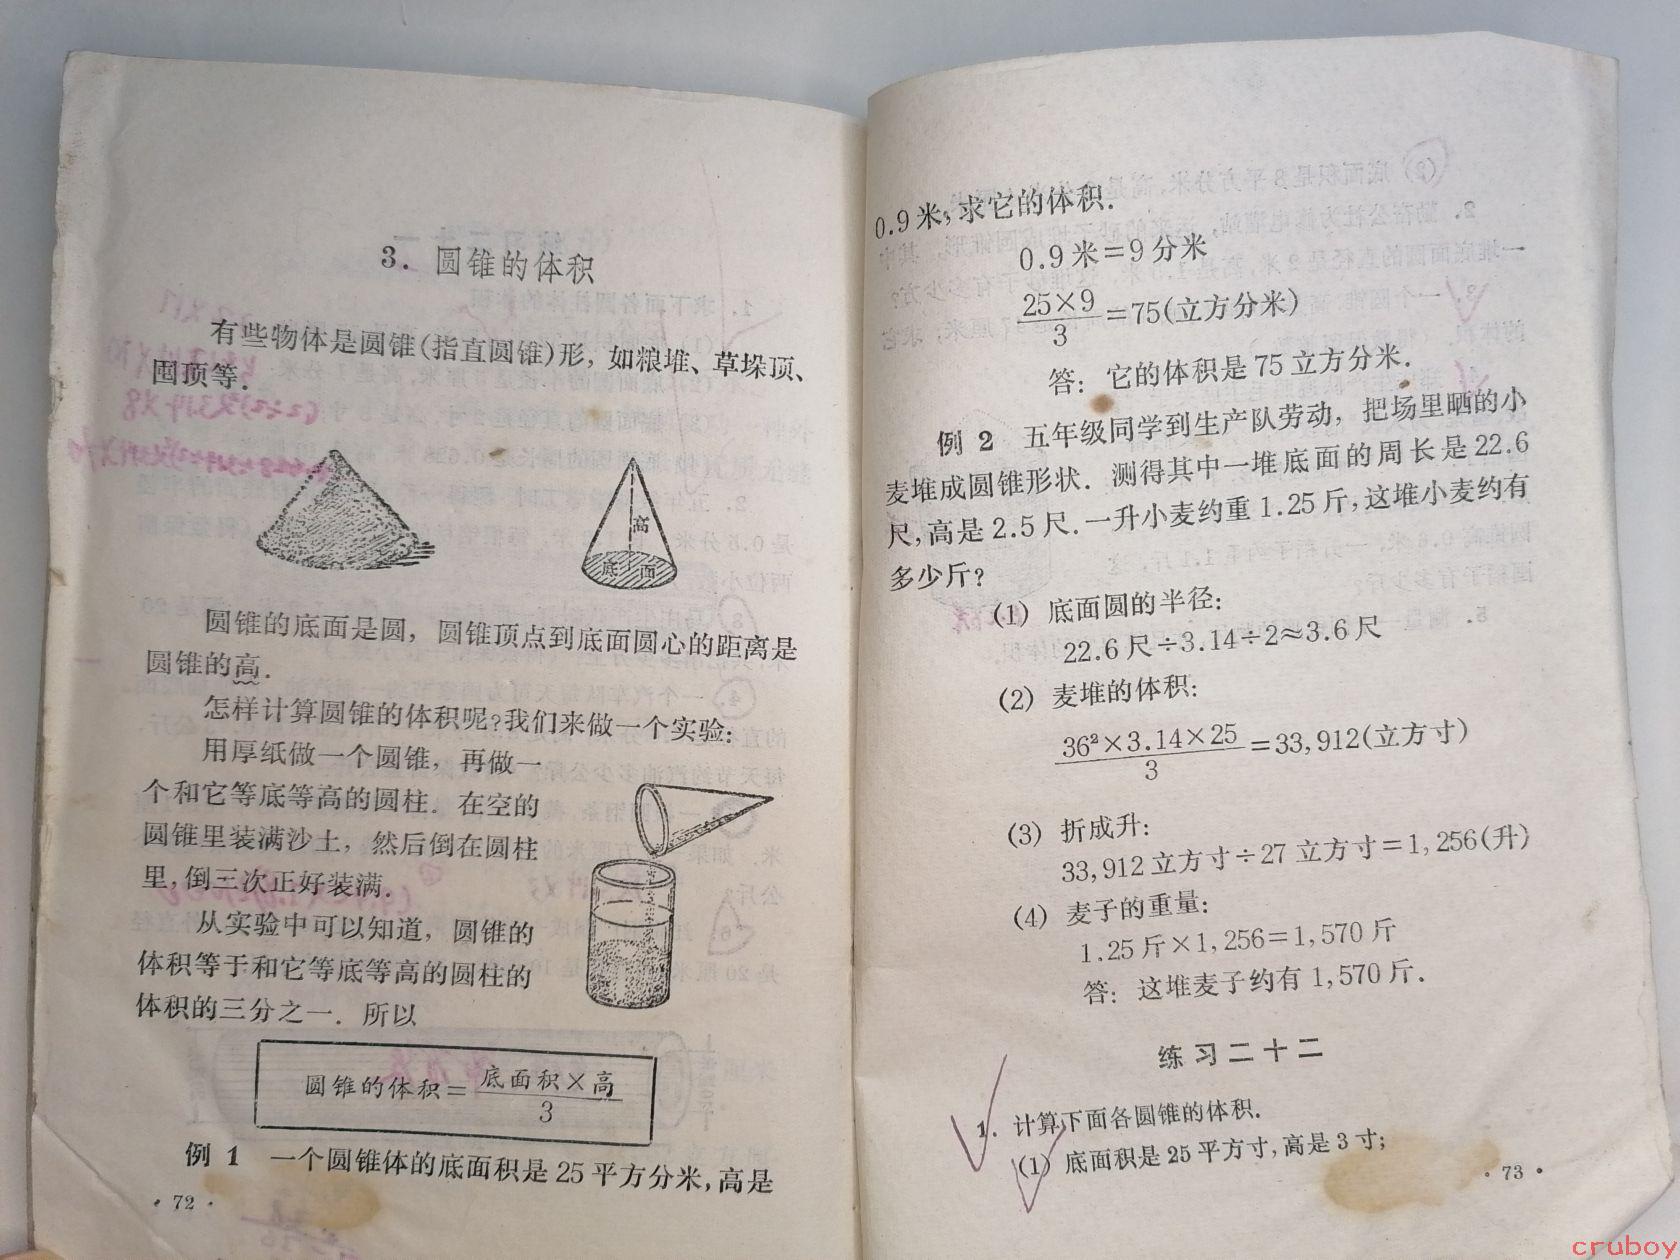 3. 圆锥的体积
有些物体是圆锥(指直圆锥)形, 如粮堆、草垛顶、
囤顶等.
高
底 面
圆锥的底面是圆, 圆锥顶点到底面圆心的距离是
圆锥的高.
怎样计算圆锥的体积呢?我们来做一个实验:
用厚纸做一个圆锥, 再做一
个和它等底等高的圆柱. 在空的
圆锥里装满沙土, 然后倒在圆柱
里, 倒三次正好装满.
从实验中可以知道, 圆锥的
体积等于和它等底等高的圆柱的
体积的三分之一. 所以
圆锥的体积=底面积×高/3
例 1 一个圆锥体的底面积是25平方分米, 高是
· 72 ·
0.9米, 求它的体积.
0.9米=9分米
25×9/3=75(立方分米)
答: 它的体积是75立方分米.
例 2 五年级同学到生产队劳动, 把场里晒的小
麦堆成圆锥形状. 测得其中一堆底面的周长是22.6
尺, 高是2.5尺. 一升小麦约重1.25斤, 这堆小麦约有
多少斤?
(1) 底面圆的半径:
22.6尺÷3.14÷2≈3.6尺
(2) 麦堆的体积:
36²×3.14×25/3=33,912(立方寸)
(3) 折成升:
33,912立方寸÷27立方寸=1,256(升)
(4) 麦子的重量:
1.25斤×1,256=1,570斤
答: 这堆麦子约有1,570斤.
练习二十二
1. 计算下面各圆锥的体积.
(1) 底面积是25平方寸, 高是3寸;
· 73 ·
cruboy